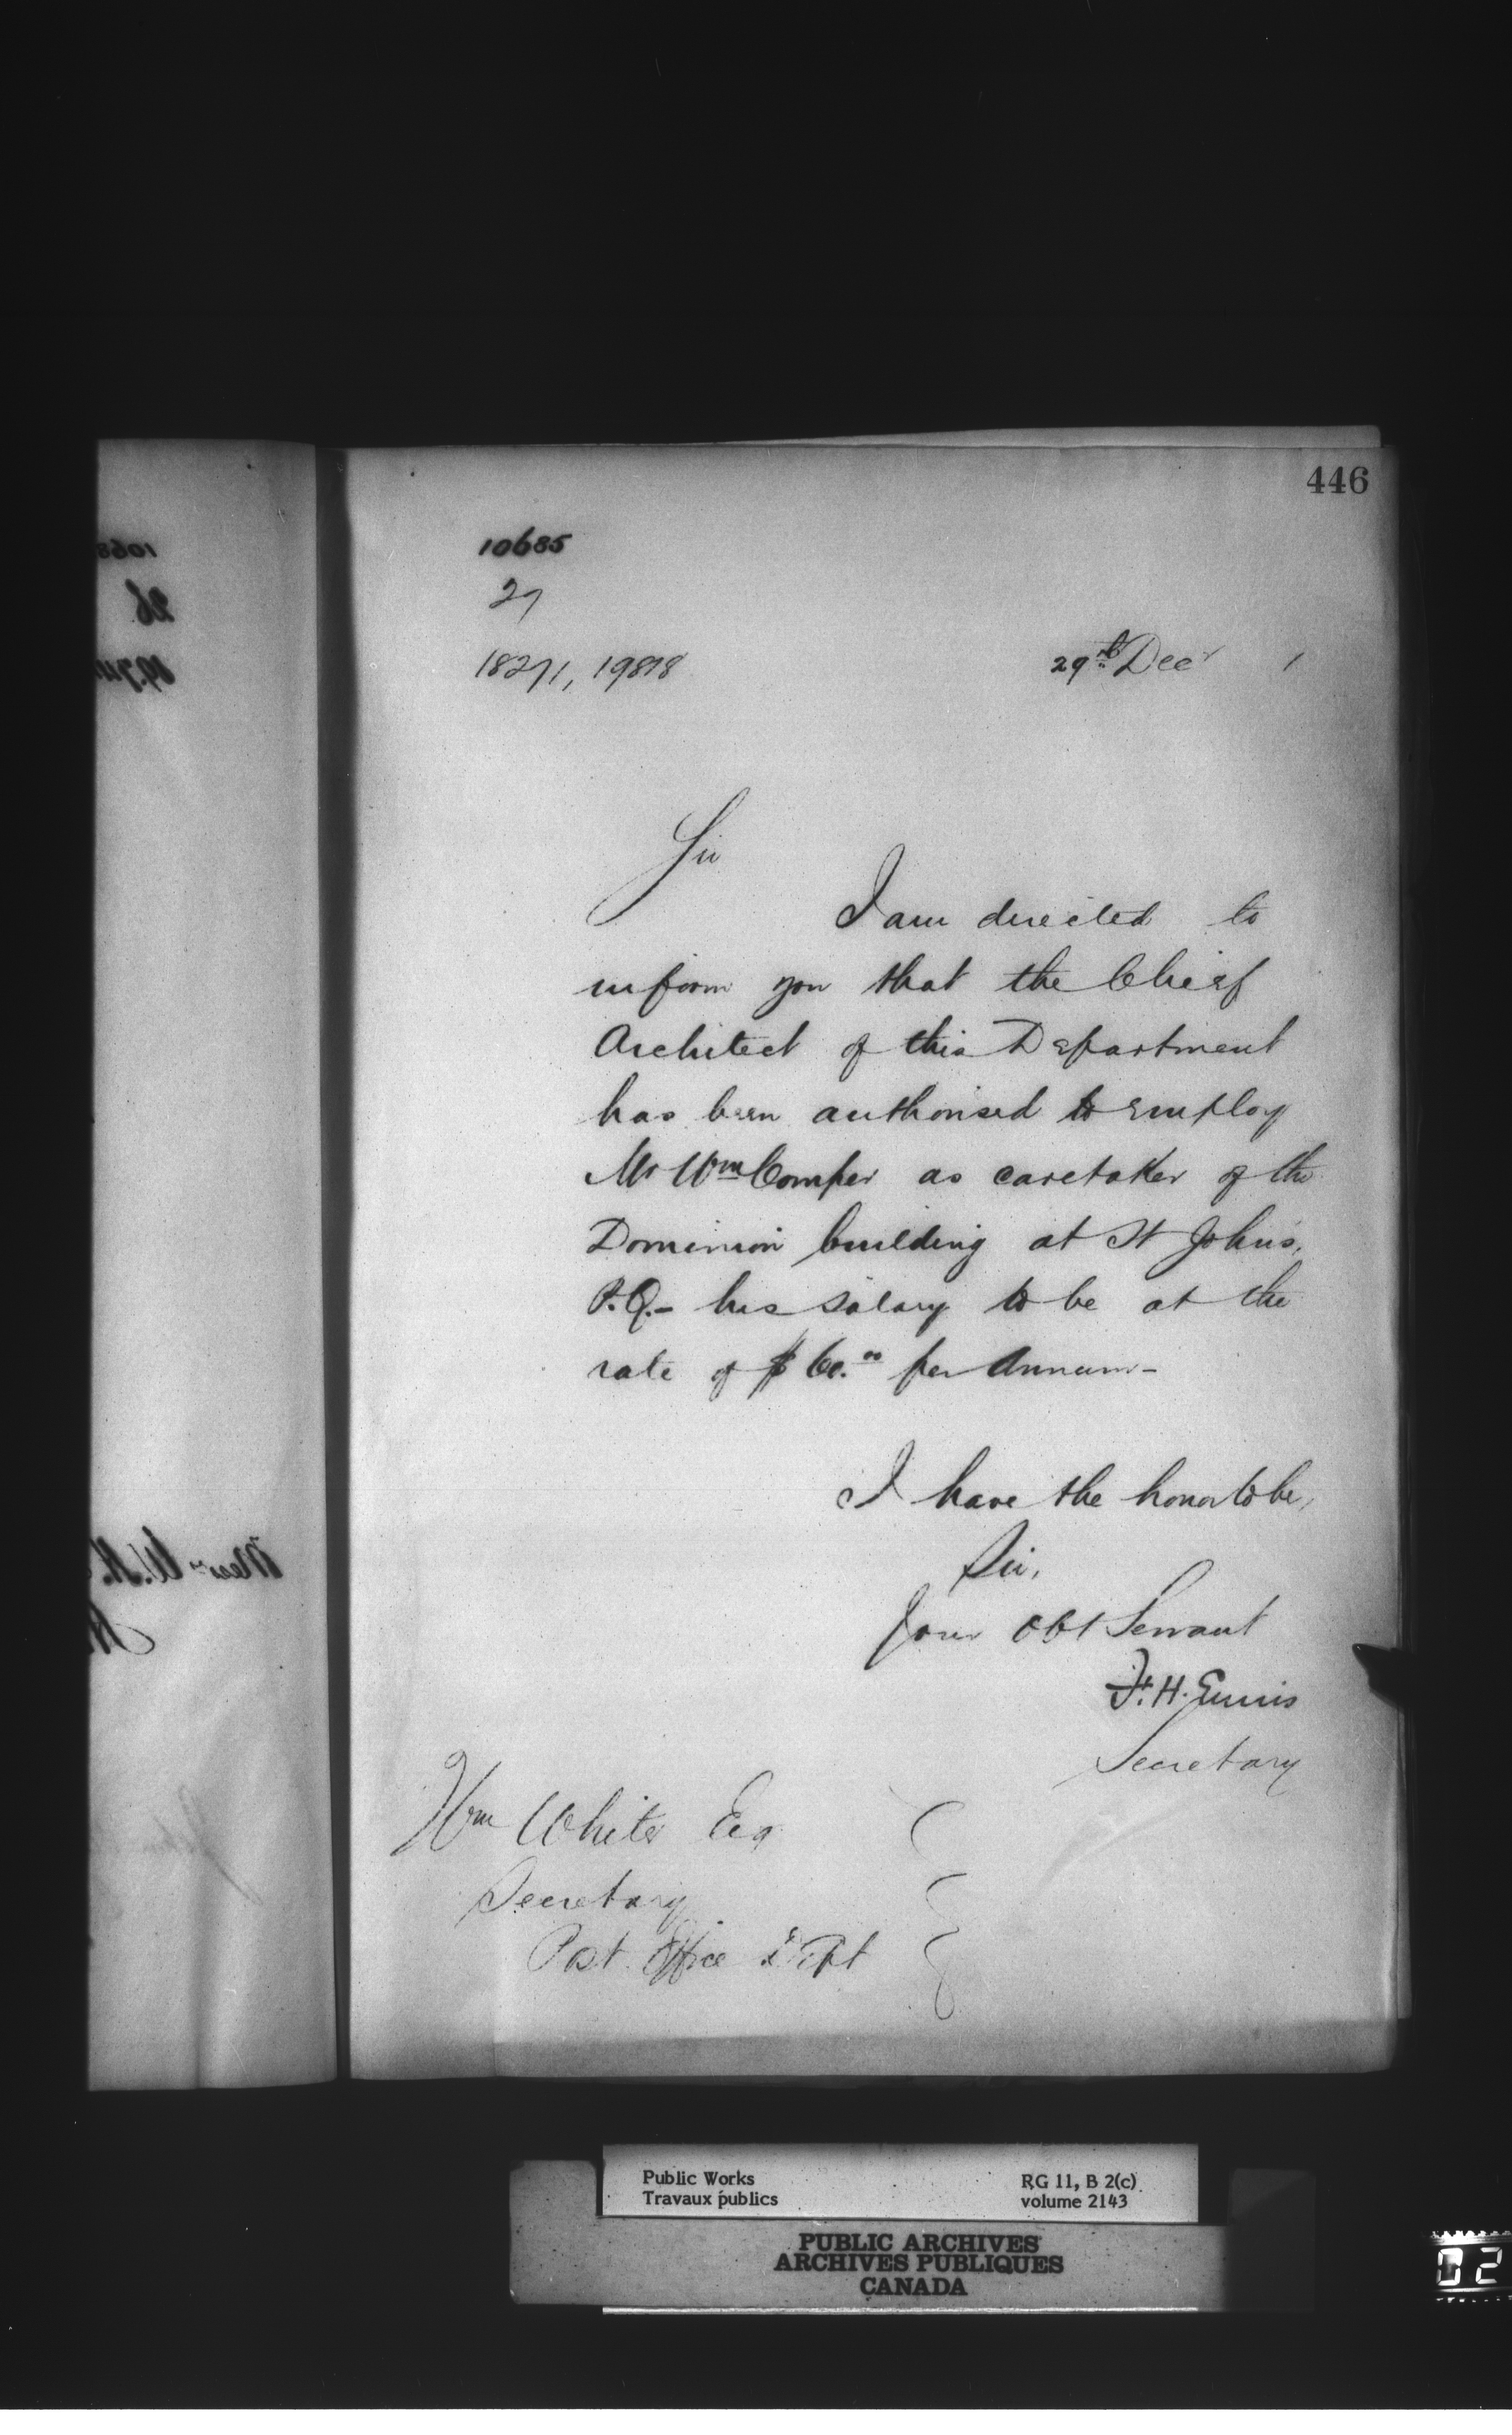 446
10685
27
18271, 19878
29th Decr 1
Sir
I am directed to
inform you that the Chief
Architect of this Department
has been authorised to employ
Mr Wm Comper as caretaker of the
Dominion building at St John's,
P.Q.- his salary to be at the
rate of $60.00 per Annum-
I have the honor to be,
Sir,
Your Obt Servant
F. H. Ennis
Secretary
Wm White Esq
Secretary
Post Office Dept
Public Works
Travaux publics
RG 11, B 2(c)
volume 2143
PUBLIC ARCHIVES
ARCHIVES PUBLIQUES
CANADA
02